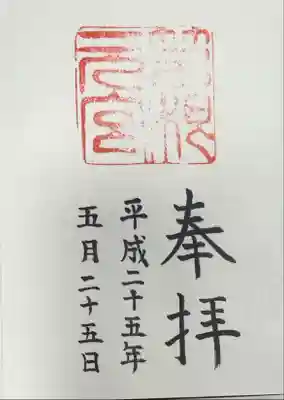 奉拝
平成二十五年
五月二十五日